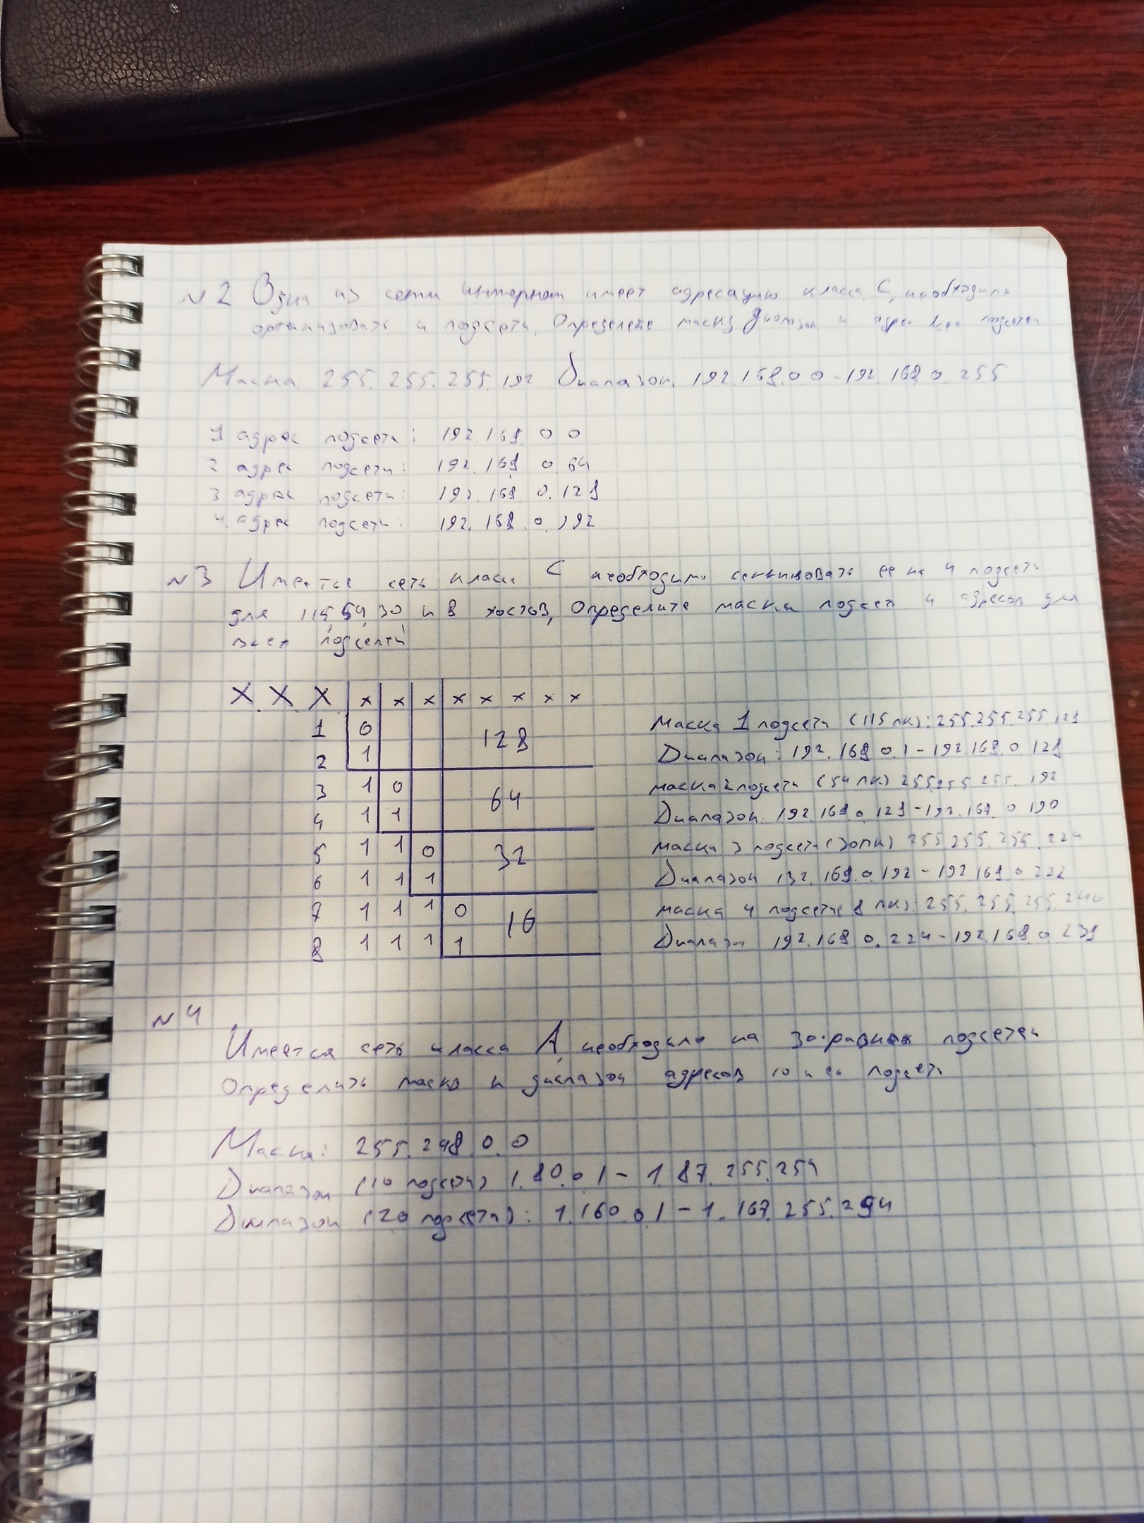 №2 Одна из сети интернет имеет адресацию класса С, необходимо
организовать 4 подсети. Определете маску и адрес подсети
Маска 255.255.255.192 Диапазон 192.168.0.0-192.168.0.255
1 адрес подсети: 192.168.0.0
2 адрес подсети: 192.168.0.64
3 адрес подсети: 192.168.0.128
4 адрес подсети: 192.168.0.192
№3 Имеется сеть класса С необходимо ее на 4 подсети
для 115,54,30 и 8 хостов, Определите маски подсети и адреса для
всех подсетей
X X X x x x x x x x x
1 0 128
2 1
3 1 0 64
4 1 1
5 1 1 0 32
6 1 1 1
7 1 1 1 0 16
8 1 1 1 1
Маска 1 подсети (115 пк): 255.255.255.128
Диапазон: 192.168.0.1-192.168.0.128
маска 2 подсети (54 пк) 255.255.255.192
Диапазон 192.168.0.129-192.168.0.190
маска 3 подсети (30пк) 255.255.255.224
Диапазон 192.168.0.192-192.168.0.222
маска 4 подсети 8 пк): 255.255.255.240
Диапазон 192.168.0.224-192.168.0.239
№4
Имеется сеть класса А, необходимо на 30 равных подсетей
Определить маску и диапазон адресов 10 и 20 подсеть
Маска: 255.248.0.0
Диапазон (10 подсети) 1.80.0.1-1.87.255.254
Диапазон (20 подсети): 1.160.0.1-1.167.255.254